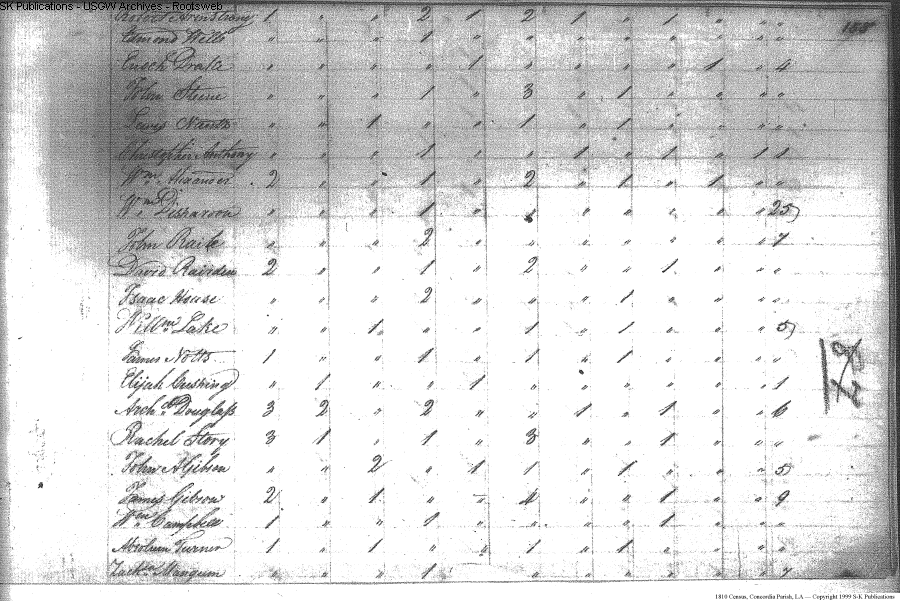 SK Publications - USGW Archives - Rootsweb
Robert Armstrong 1 " " 2 1 2 1 " 1 " " "
Edmond Wells " " " 1 " " " " " " " "
Enoch Drake " " " " 1 " " " " 1 " 4
John " " " 1 " 3 " 1 " " " "
Lewis " " 1 " " 1 " 1 " " " "
Christopher Anthony " " " 1 " " 1 " 1 " 1 1
Wm. 2 " " 1 " 2 " 1 " 1 " "
Wm. D. " " " 1 " " " " " " 25
John " " " 2 " " " " " " " 7
David Rairden 2 " " 1 " 2 " " 1 " " "
Isaac House " " " 2 " " " 1 " " " "
Willm. Lake " " 1 " " 1 " 1 " " " 5
James Notts 1 " " 1 " 1 " 1 " " " "
Elijah Cushing " 1 " " 1 " " " " " " 1
Archd. Douglass 3 2 " 2 " " 1 " 1 " " 6
Rachel Story 3 1 " 1 " 3 " " 1 " " "
John A Gibson " " 2 " 1 1 " 1 " " " 5
James Gibson 2 " 1 " " 4 " " 1 " " 9
Wm. Campbell 1 " " 1 " " " " 1 " " "
Absolum Turner 1 " 1 " " 1 " 1 " " " "
Mangum " " " 1 " " " " " " " 7
1810 Census, Concordia Parish, LA — Copyright 1999 S-K Publications